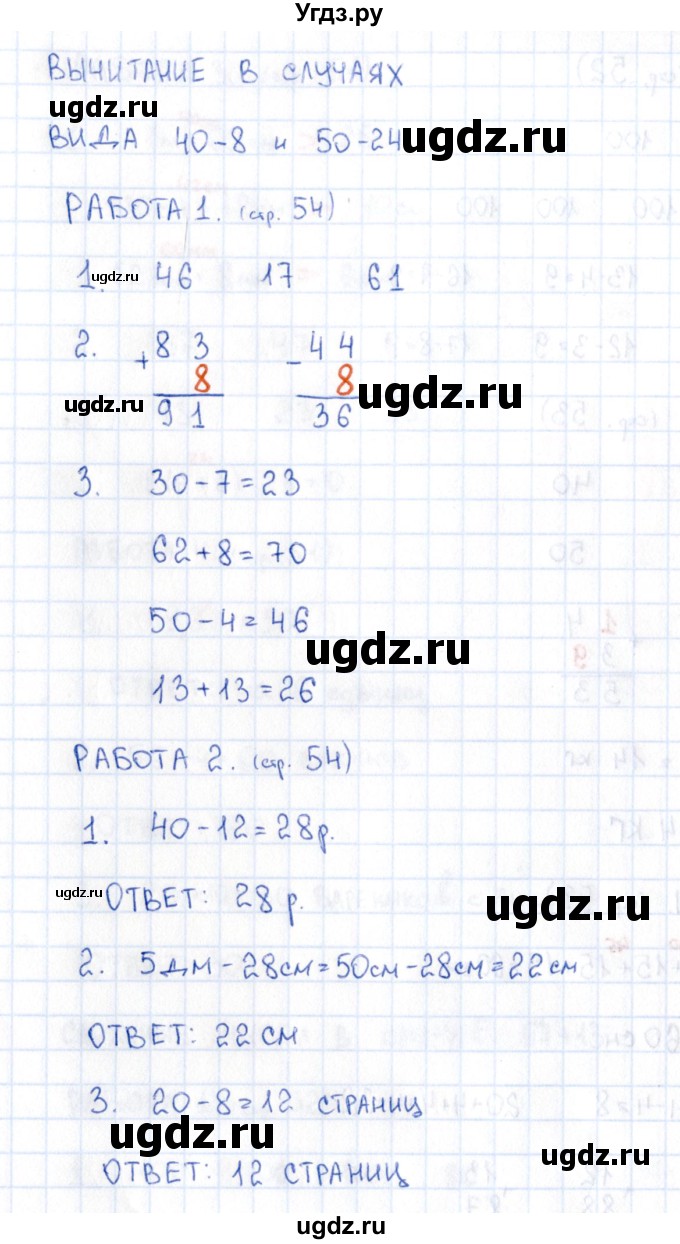 Угдз.ру
ВЫЧИТАНИЕ В СЛУЧАЯХ
ugdz.ru
ВИДА 40-8 и 50-24
ugdz.ru
РАБОТА 1. (стр. 54)
1. 46 17 61
ugdz.ru
2. + 83 - 44
8 8
ugdz.ru
ugdz.ru
91 36
3. 30-7=23
62+8=70
50-4=46
ugdz.ru
13+13=26
РАБОТА 2. (стр. 54)
1. 40-12=28р.
ugdz.ru
ОТВЕТ: 28р.
ugdz.ru
2. 5дм-28см=50см-28см=22см
ОТВЕТ: 22 СМ
3. 20-8=12 СТРАНИЦ
ugdz.ru
ugdz.ru
ОТВЕТ: 12 СТРАНИЦ
ugdz.ru